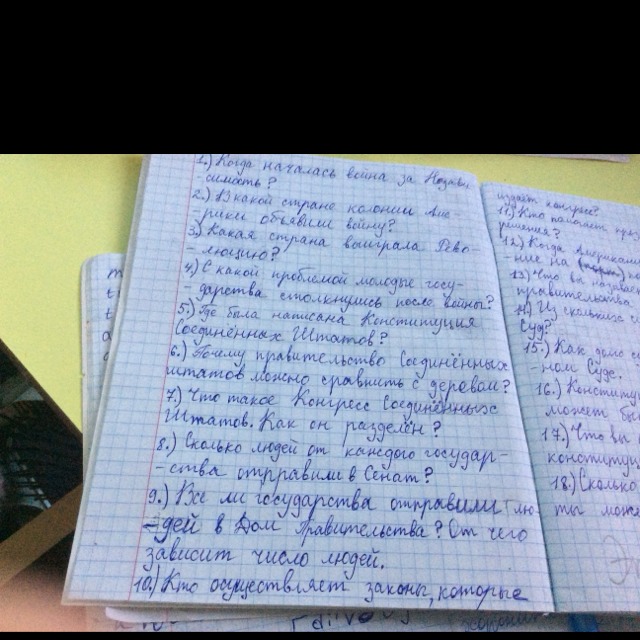 1.) Когда началась война за Незави
- симость?
2.) В какой стране колонии Аме
- рики объявили войну?
3.) Какая страна выиграла Рево-
- люцию?
4.) С какой проблемой молодые госу-
- дарства столкнулись после войны?
5.) Где была написана Конституция
Соединённых Штатов?
6.) Почему правительство Соединённых
штатов можно сравнить с деревом?
7.) Что такое Конгресс Соединённых
Штатов. Как он разделён?
8.) Сколько людей от каждого государ-
- ства отправили в Сенат?
9.) Все ли государства отправили лю-
- дей в Дом Правительства? От чего
зависит число людей.
10.) Кто осуществляет законы, которые
издаёт конгресс?
11.) Кто
решения?
12.) Когда Американ
- ние на
13.) Что вы называе
правительства
14.) Из скольких
Суд?
15.) Как
- ном Суде.
16.) Конститу
может бы
17.) Что вы
конституци
18.) Сколько
ты може